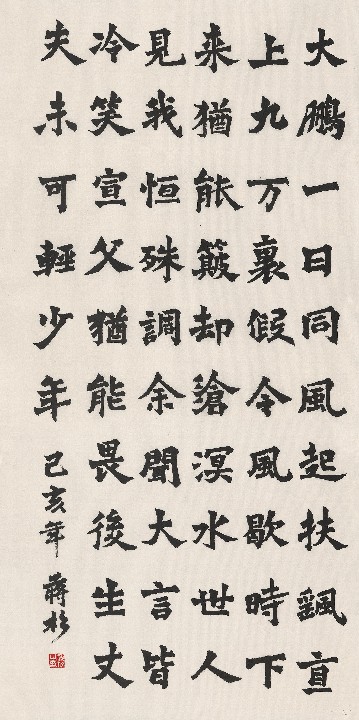 大鵬一日同風起扶颻直
上九万裏假令風歇時下
来猶能簸却滄溟水世人
見我恒殊調余聞大言皆
冷笑宣父猶能畏後生丈
夫未可輕少年 己亥年 蔣杉